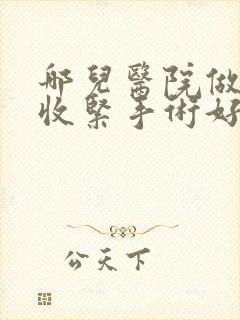 哪兒醫院做
收緊手術好
公天下